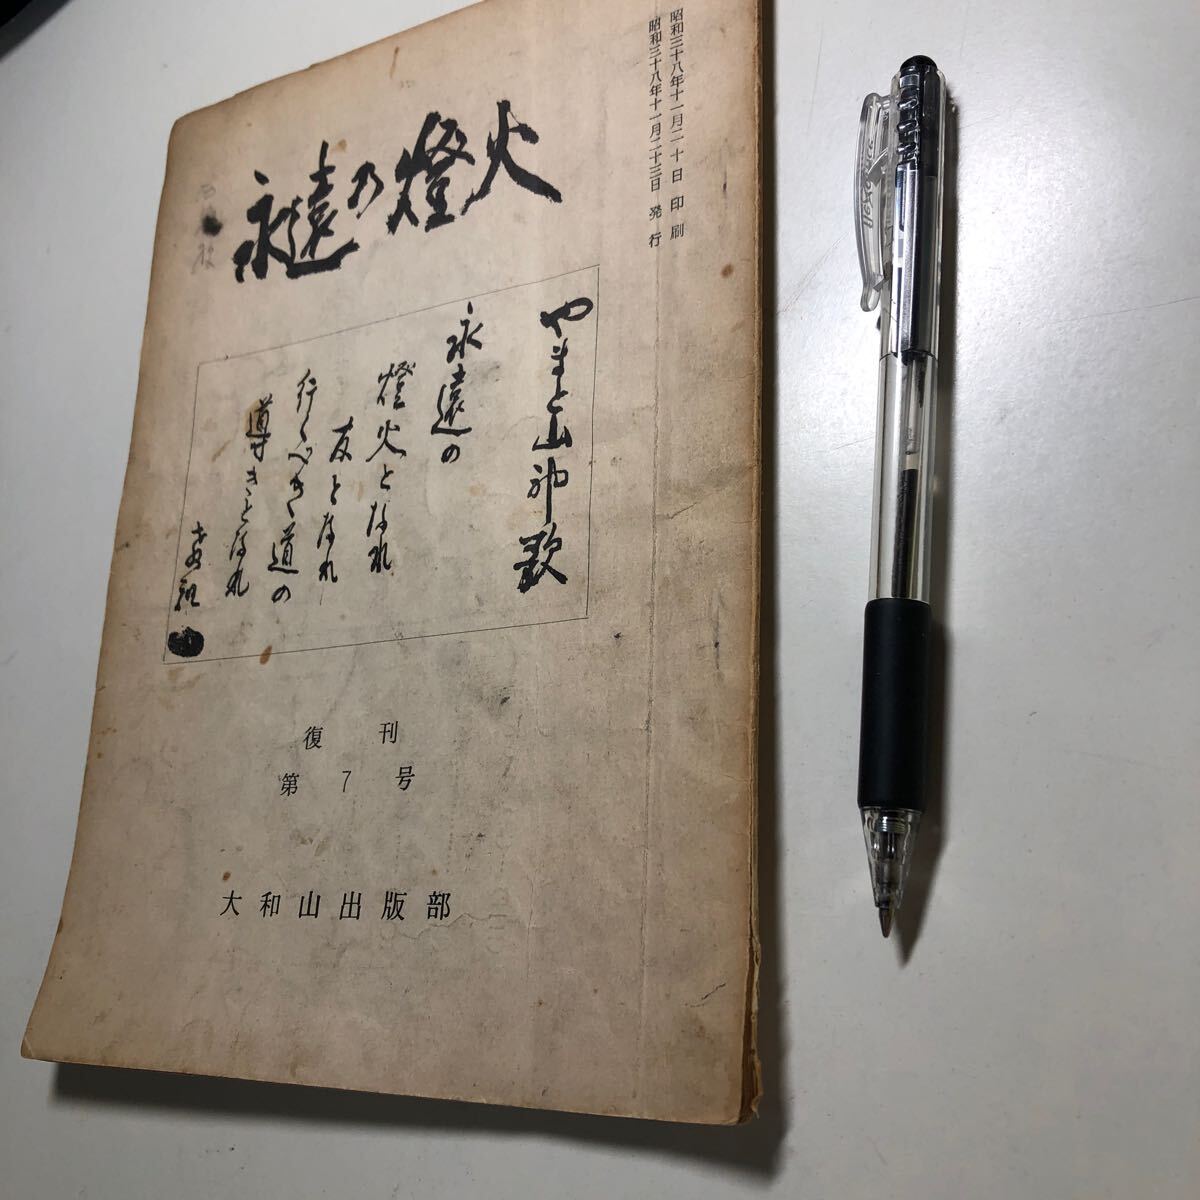 昭和三十八年十一月二十日 印刷
昭和三十八年十一月二十三日 発行
永遠乃燈火
やまと山神歌
永遠の
燈火となれ
友となれ
行くべき道の
導きとなれ
教祖
復刊
第7号
大和山出版部